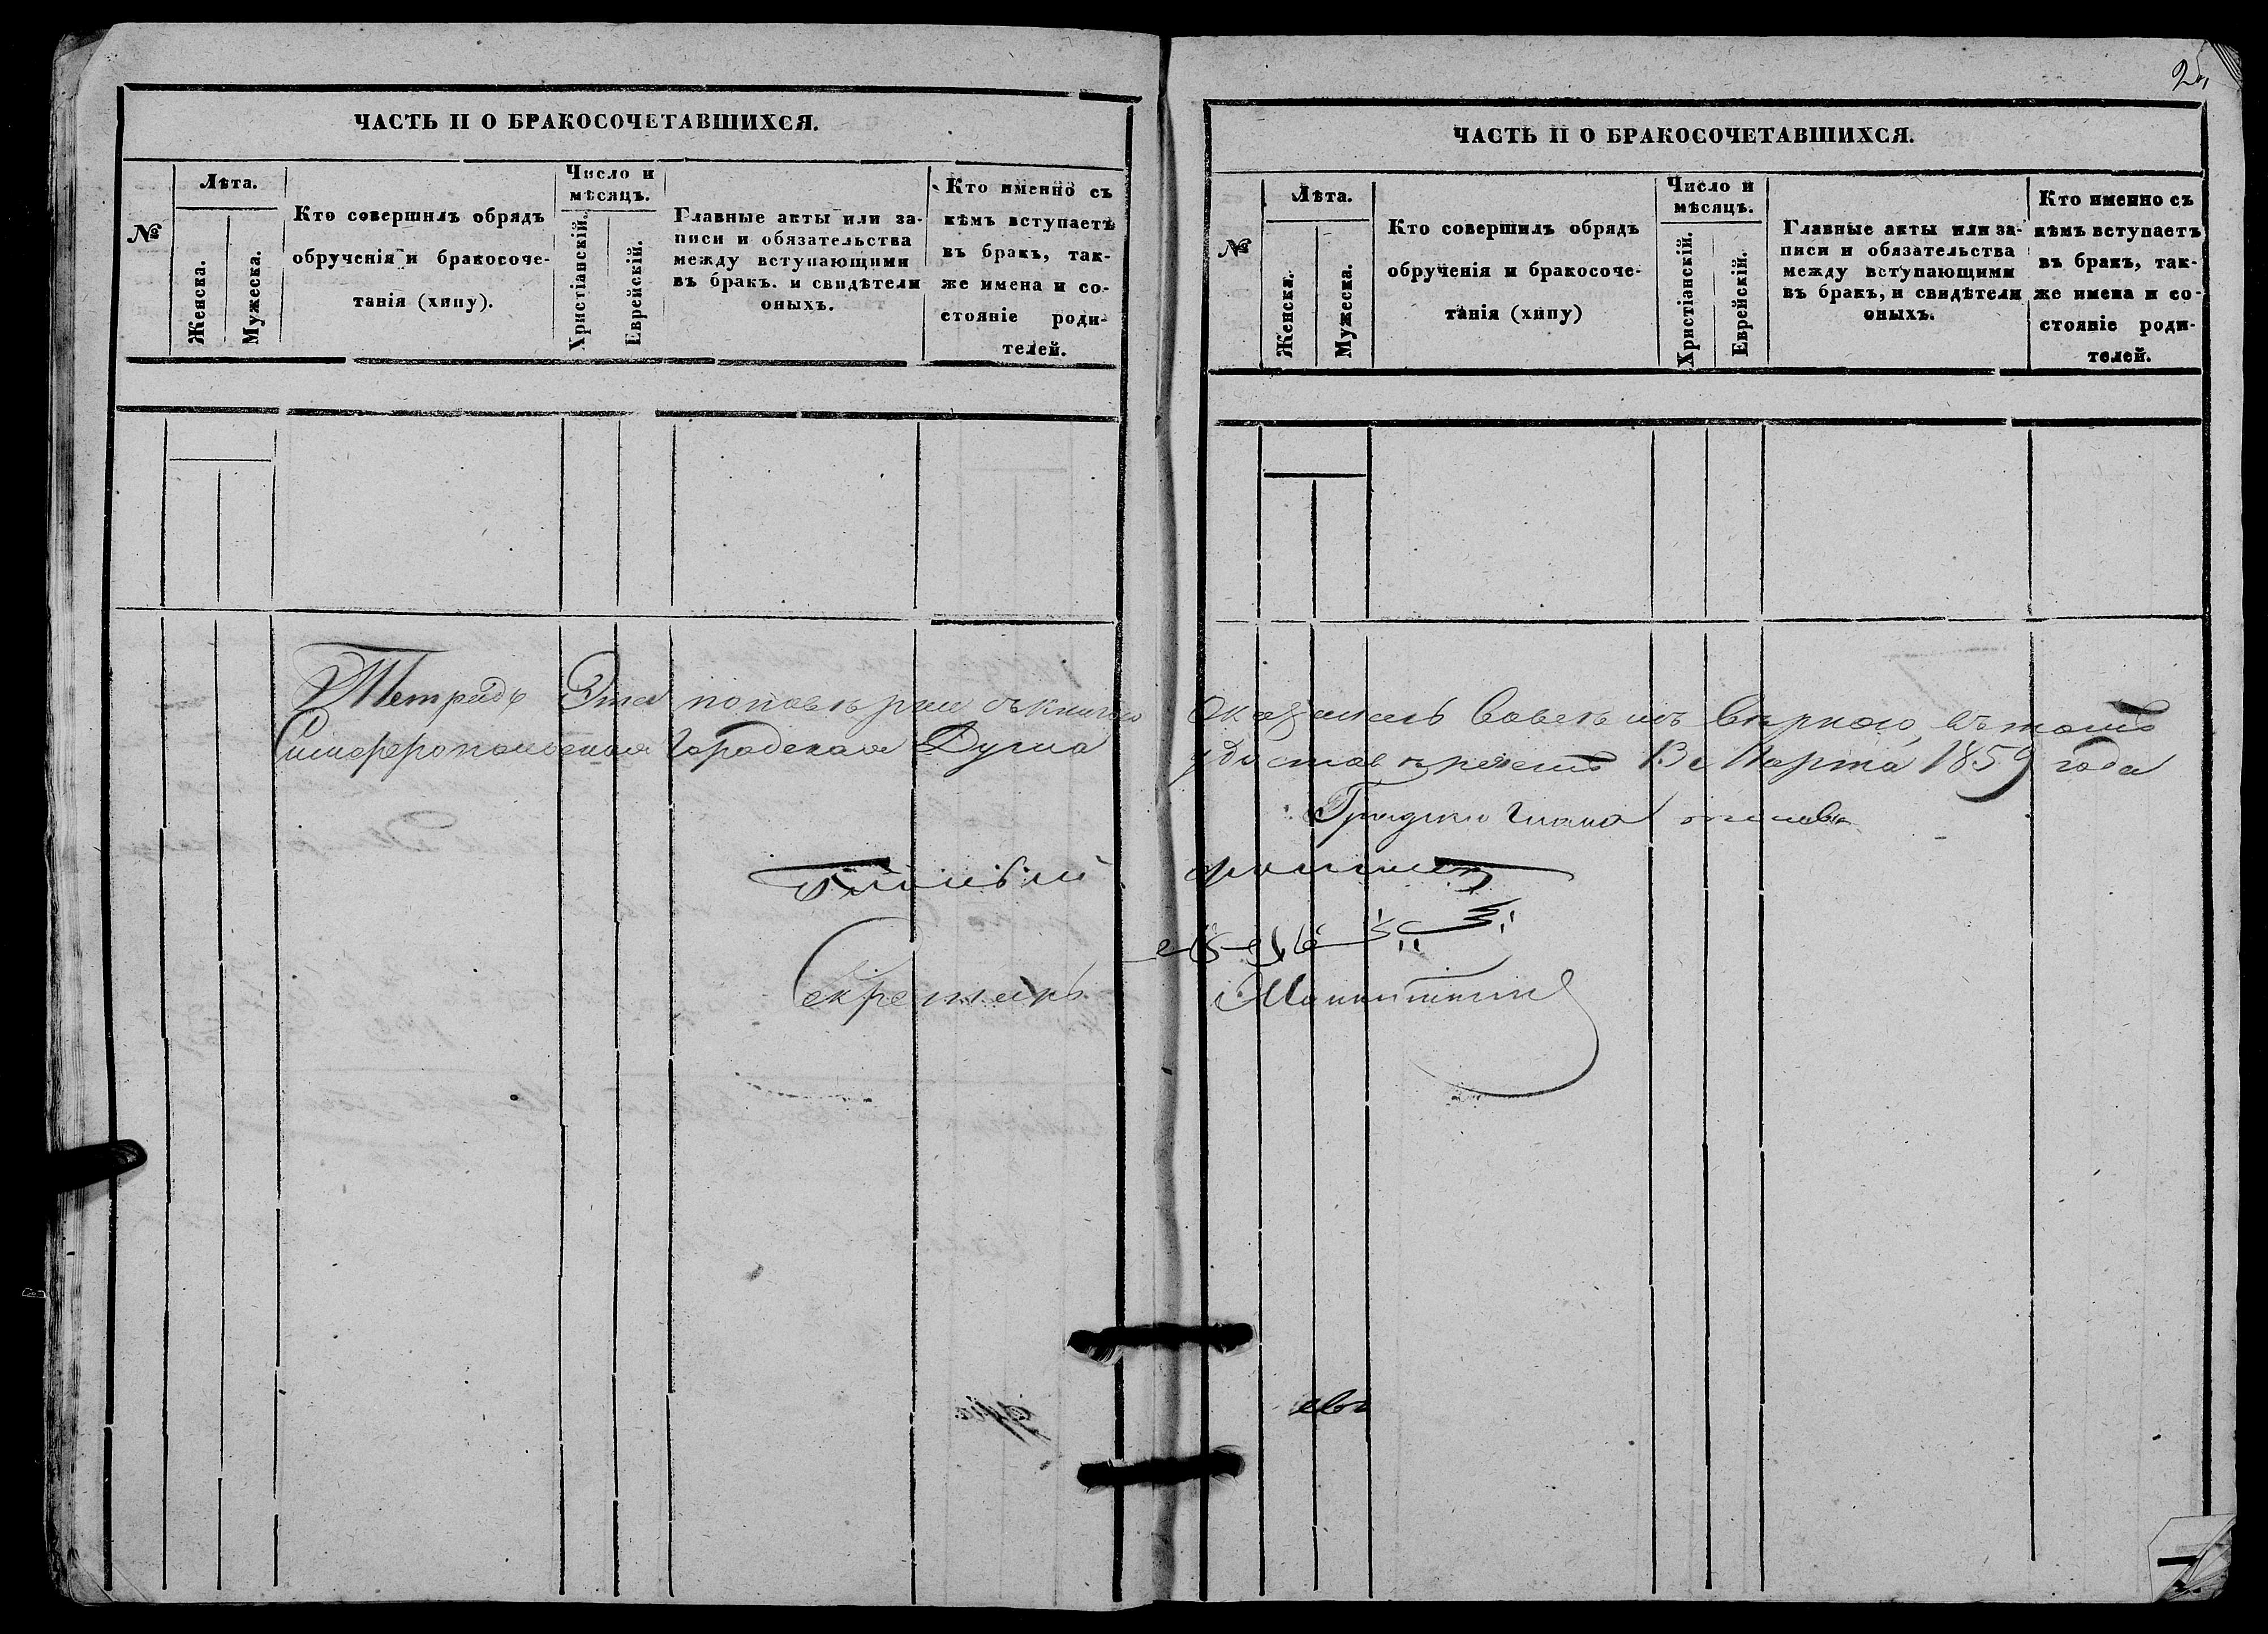 ЧАСТЬ II О БРАКОСОЧЕТАВШИХСЯ.
№
Лѣта.
Женска.
Мужеска.
Кто совершилъ обрядъ
обрученія и бракосоче-
танія (хипу).
Число и
мѣсяцъ.
Христіанскій.
Еврейскій.
Главные акты или за-
писи и обязательства
между вступающими
въ бракъ. и свидѣтели
оныхъ.
Кто именно съ
кѣмъ вступаетъ
въ бракъ, так-
же имена и со-
стояніе роди-
телей.
ЧАСТЬ II О БРАКОСОЧЕТАВШИХСЯ.
№
Лѣта.
Женска.
Мужеска.
Кто совершилъ обрядъ
обрученія и бракосоче-
танія (хипу)
Число и
мѣсяцъ.
Христіанскій.
Еврейскій.
Главные акты или за-
писи и обязательства
между вступающими
въ бракъ, и свидѣтели
оныхъ.
Кто именно съ
кѣмъ вступаетъ
въ бракъ, так-
же имена и со-
стояніе роди-
телей.
Тетрадь Эта по повѣркѣ съ книгою Оказалась вѣрною, въ томъ
Симферопольская Городская Дума удостовѣряетъ 13 Марта 1859 года
Гласный
Секретарь